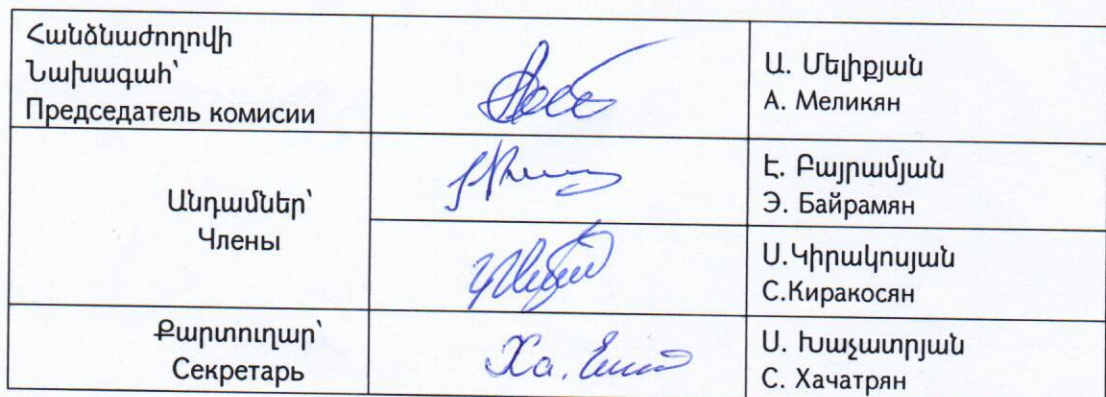 Հանձնաժողովի
Նախագահ՝
Председатель комисии
Ա. Մելիքյան
А. Меликян
Անդամներ՝
Члены
Է. Բայրամյան
Э. Байрамян
Ս.Կիրակոսյան
С.Киракосян
Քարտուղար՝
Секретарь
Ս. Խաչատրյան
С. Хачатрян